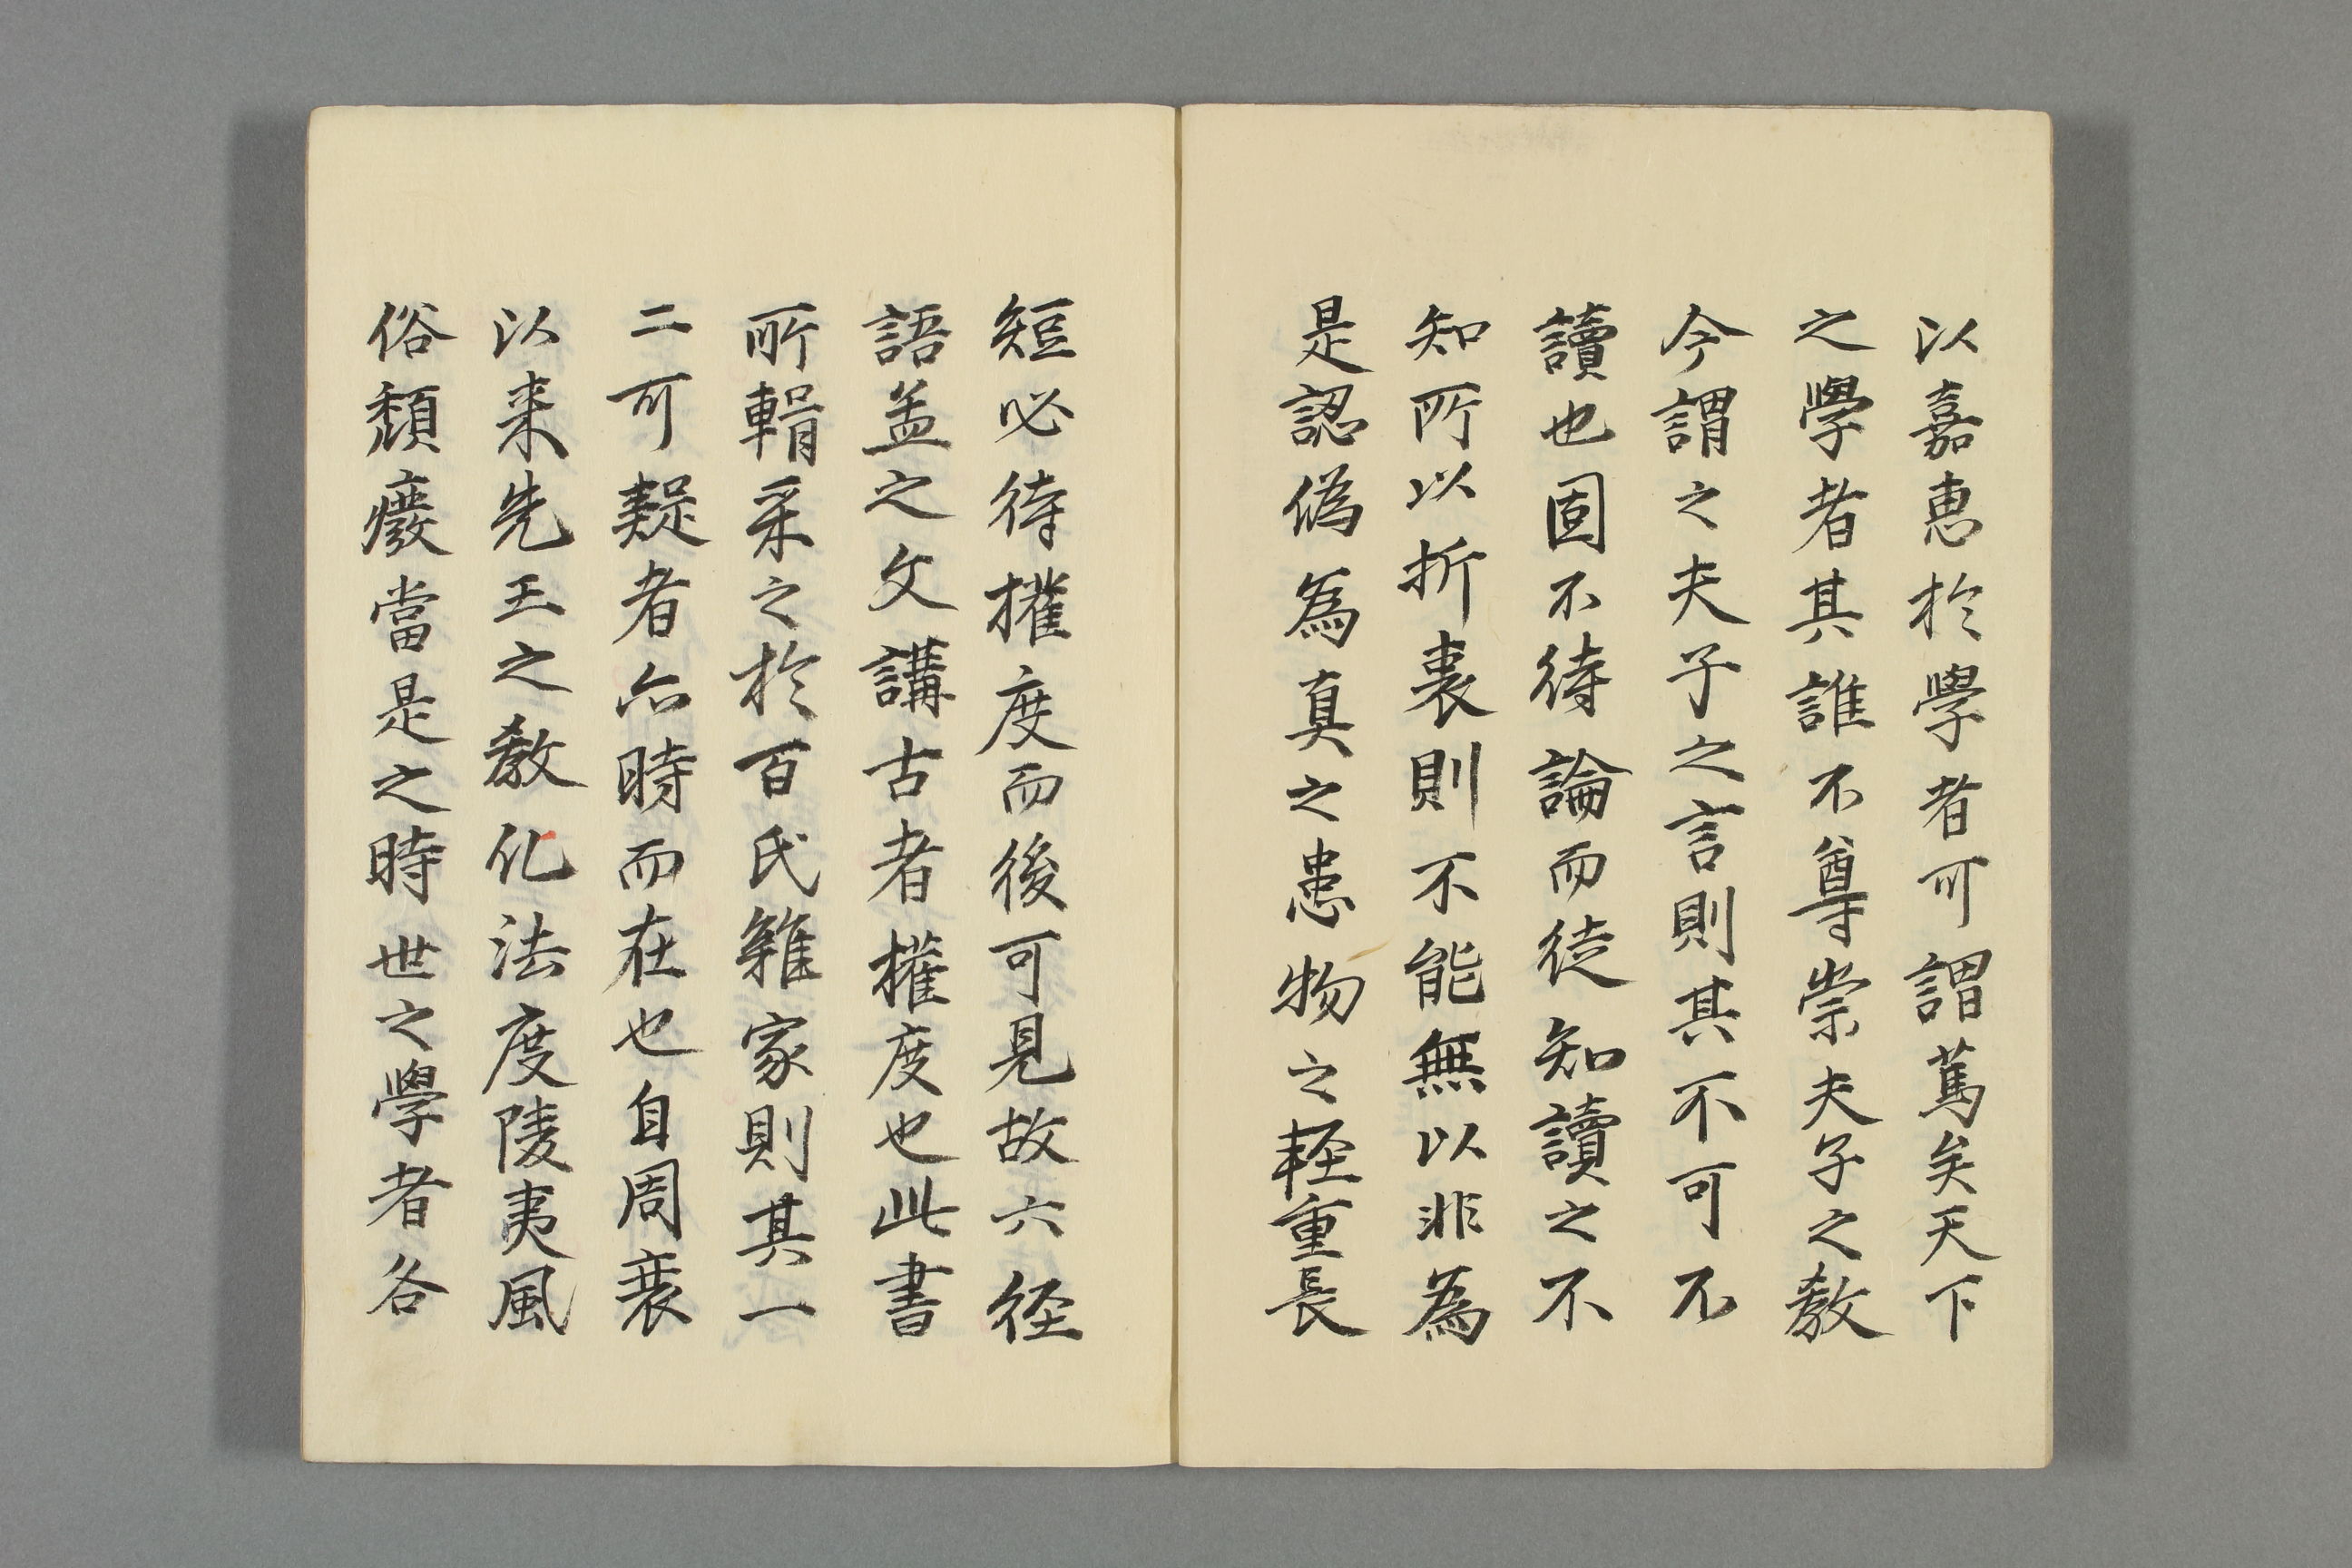 以嘉恵於學者可謂篤矣天下
之學者其誰不尊崇夫子之教
今謂之夫子之言則其不可不
讀也固不待論而徒知讀之不
知所以折衷則不能無以非為
是認偽為真之患物之軽重長
短必待權度而後可見故六径
語孟之文講古者權度也此書
所輯采之於百氏雜家則其一
二可疑者亦時而在也自周衰
以来先王之教化法度陵夷風
俗頽癈當是之時世之學者各